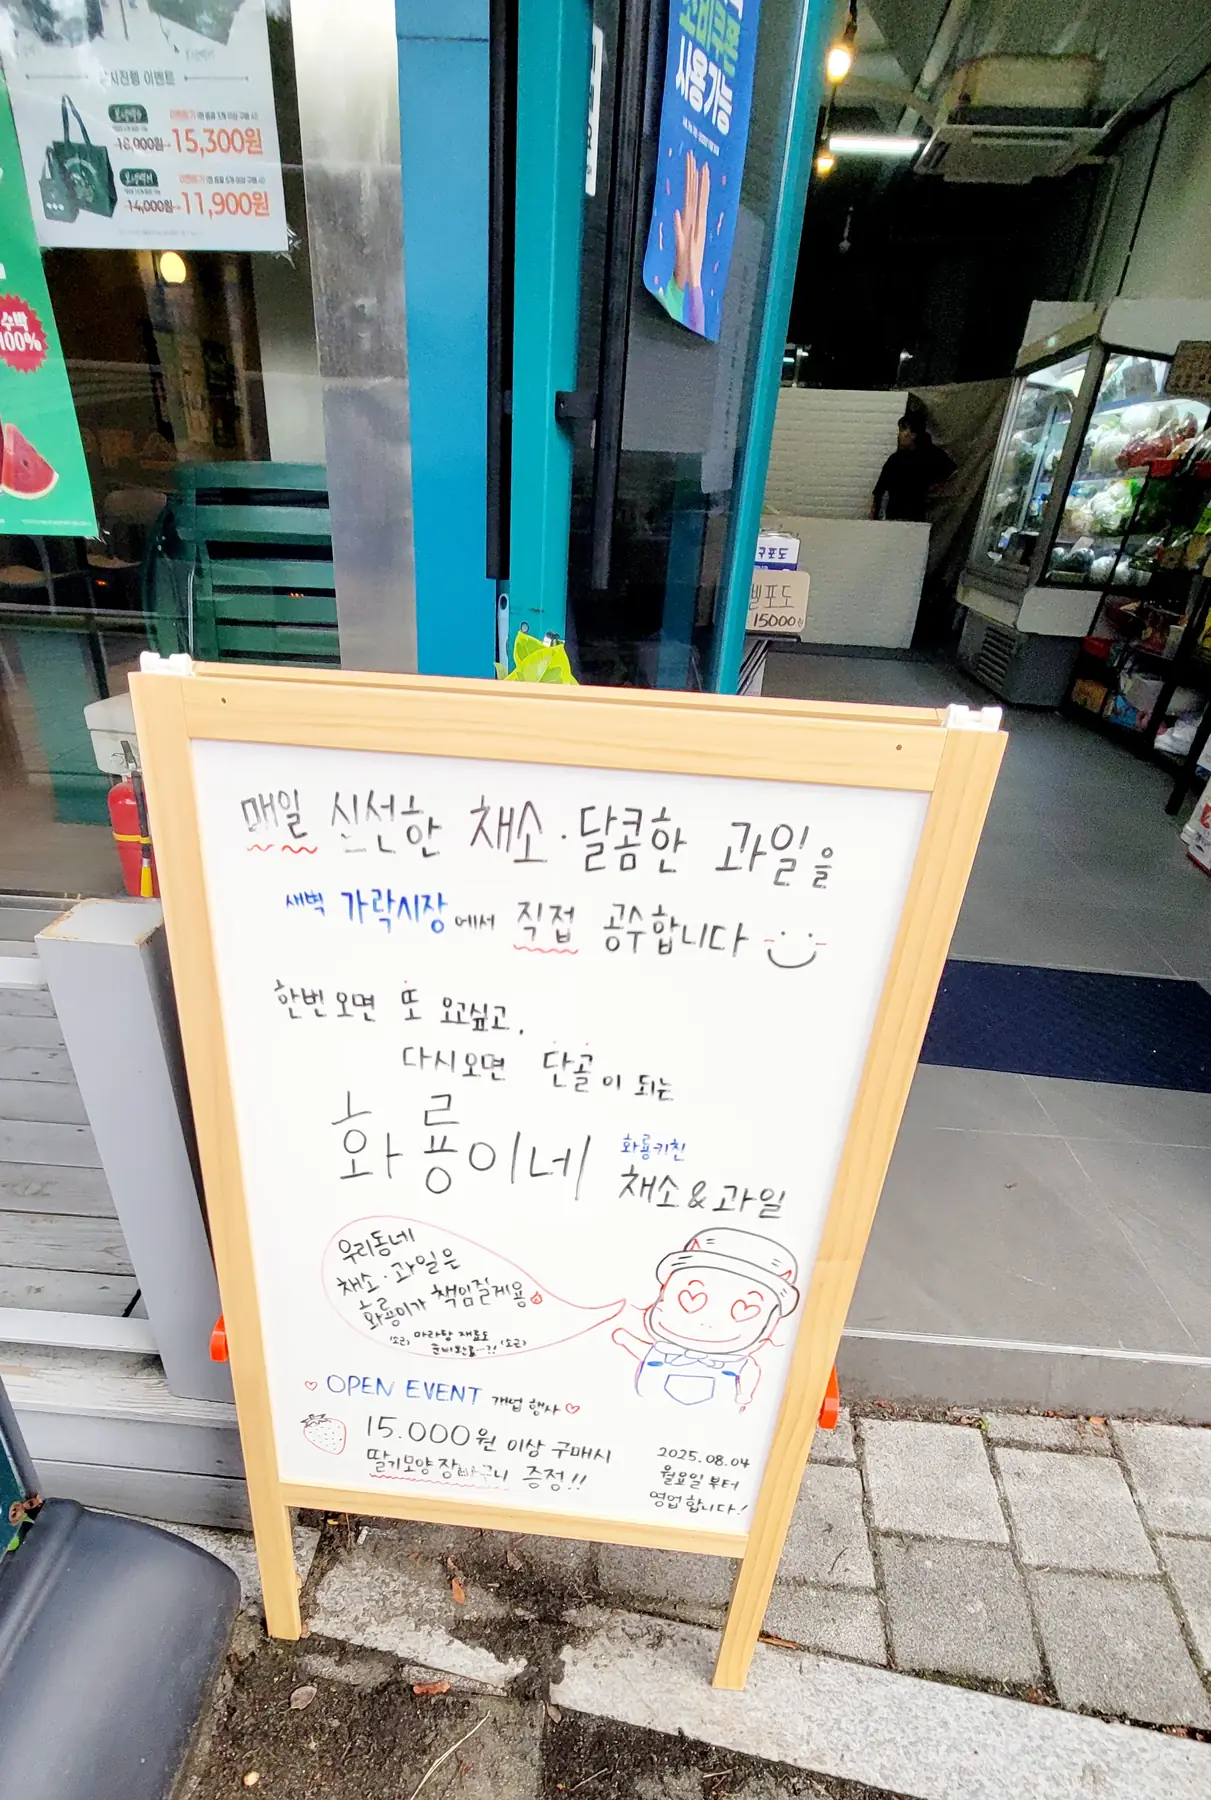 이벤트
16,000원 15,300원
14,000원 11,900원
수박
100%
소비쿠폰
사용기능
구포도
벨포도
15000
매일 신선한 채소·달콤한 과일을
새벽 가락시장에서 직접 공수합니다
한번 오면 또 오고싶고,
다시오면 단골이 되는
화룡이네
화룡키친
채소&과일
우리동네
채소·과일은
화룡이가 책임질게용
(소근) 마라탕 재료도
준비완료~?! (소근)
OPEN EVENT 개업 행사
15.000원 이상 구매시
딸기모양 장바구니 증정!!
2025.08.04
월요일부터
영업합니다!